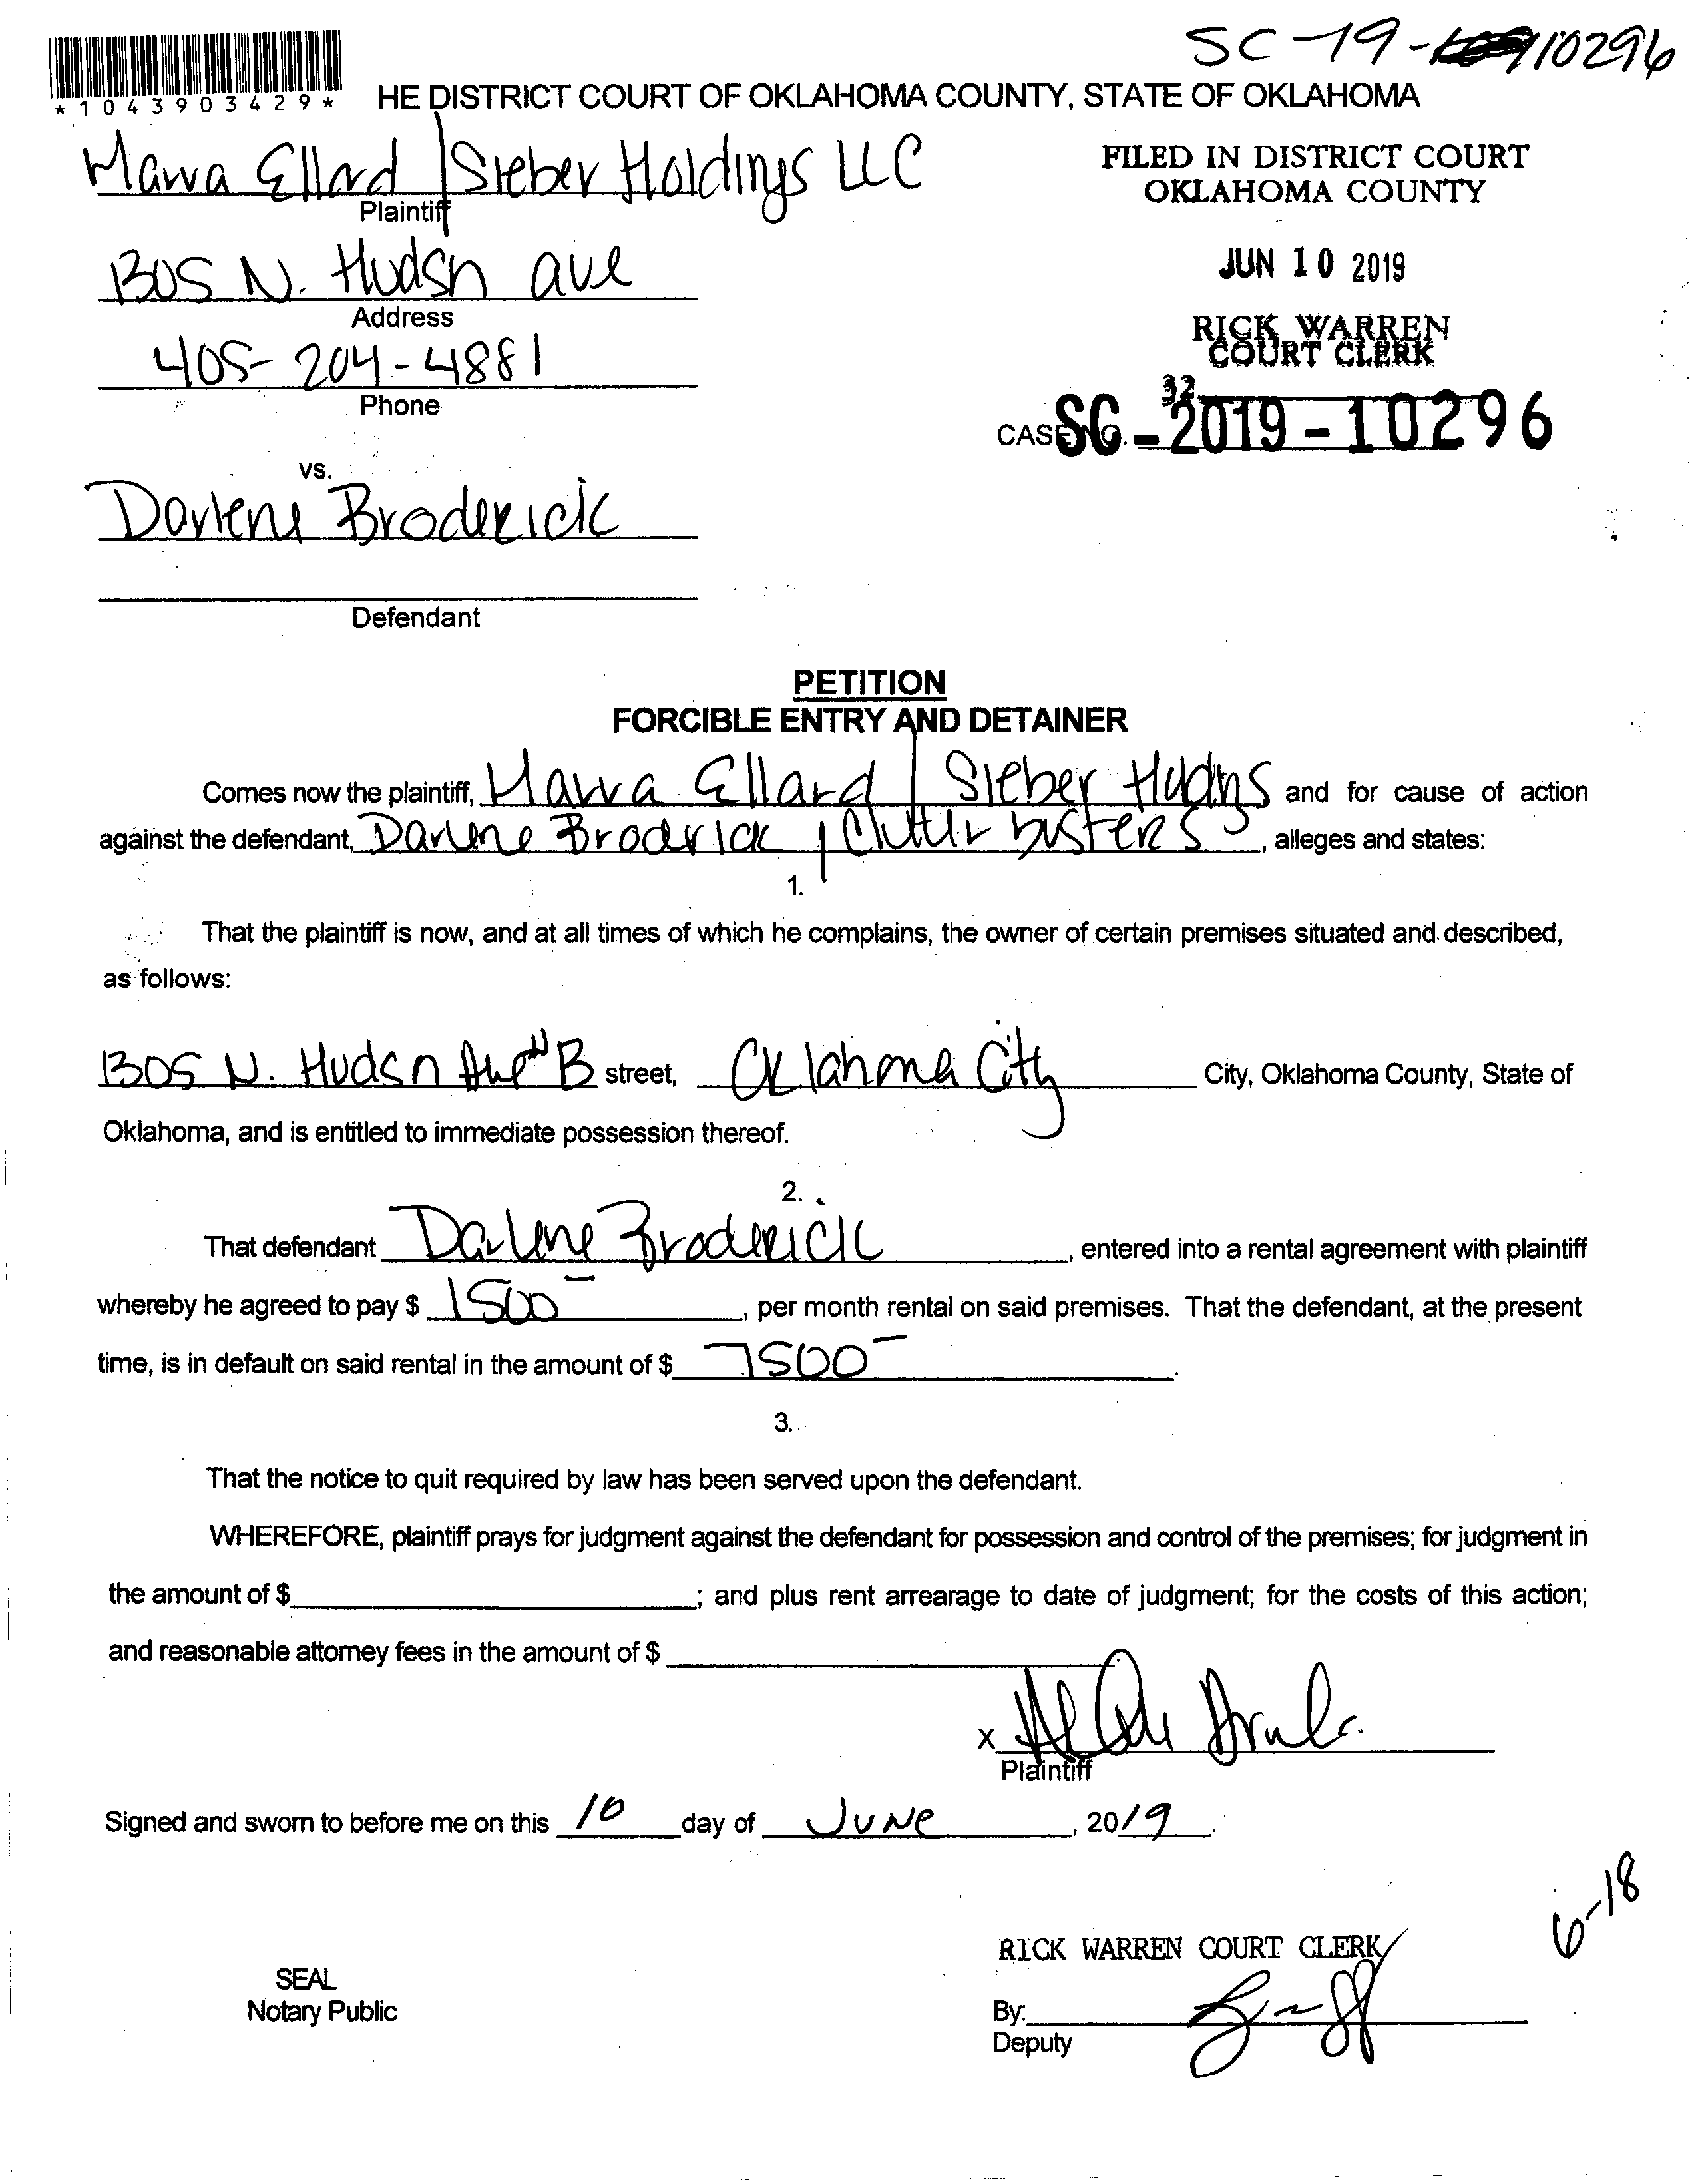 SC-19-10296
*1043903429*
HE DISTRICT COURT OF OKLAHOMA COUNTY, STATE OF OKLAHOMA
Marva Ellard / Sieber Holdings LLC
Plaintiff
FILED IN DISTRICT COURT
OKLAHOMA COUNTY
1305 N. Hudsn ave
Address
JUN 10 2019
405-204-4881
Phone
RICK WARREN
COURT CLERK
32
CASE NO. SC-2019-10296
vs.
Darlene Broderick
Defendant
PETITION
FORCIBLE ENTRY AND DETAINER
Comes now the plaintiff, Marva Ellard / Sieber Hldns and for cause of action
against the defendant, Darlene Broderick / Clutter busters, alleges and states:
1.
That the plaintiff is now, and at all times of which he complains, the owner of certain premises situated and described,
as follows:
1305 N. Hudsn Ave #B street, Oklahoma City City, Oklahoma County, State of
Oklahoma, and is entitled to immediate possession thereof.
2.
That defendant Darlene Broderick, entered into a rental agreement with plaintiff
whereby he agreed to pay $ 1500-, per month rental on said premises. That the defendant, at the present
time, is in default on said rental in the amount of $ 7500-.
3.
That the notice to quit required by law has been served upon the defendant.
WHEREFORE, plaintiff prays for judgment against the defendant for possession and control of the premises; for judgment in
the amount of $; and plus rent arrearage to date of judgment; for the costs of this action;
and reasonable attorney fees in the amount of $
x
Plaintiff
Signed and sworn to before me on this 10 day of June, 2019.
6-18
RICK WARREN COURT CLERK
SEAL
Notary Public
By:
Deputy